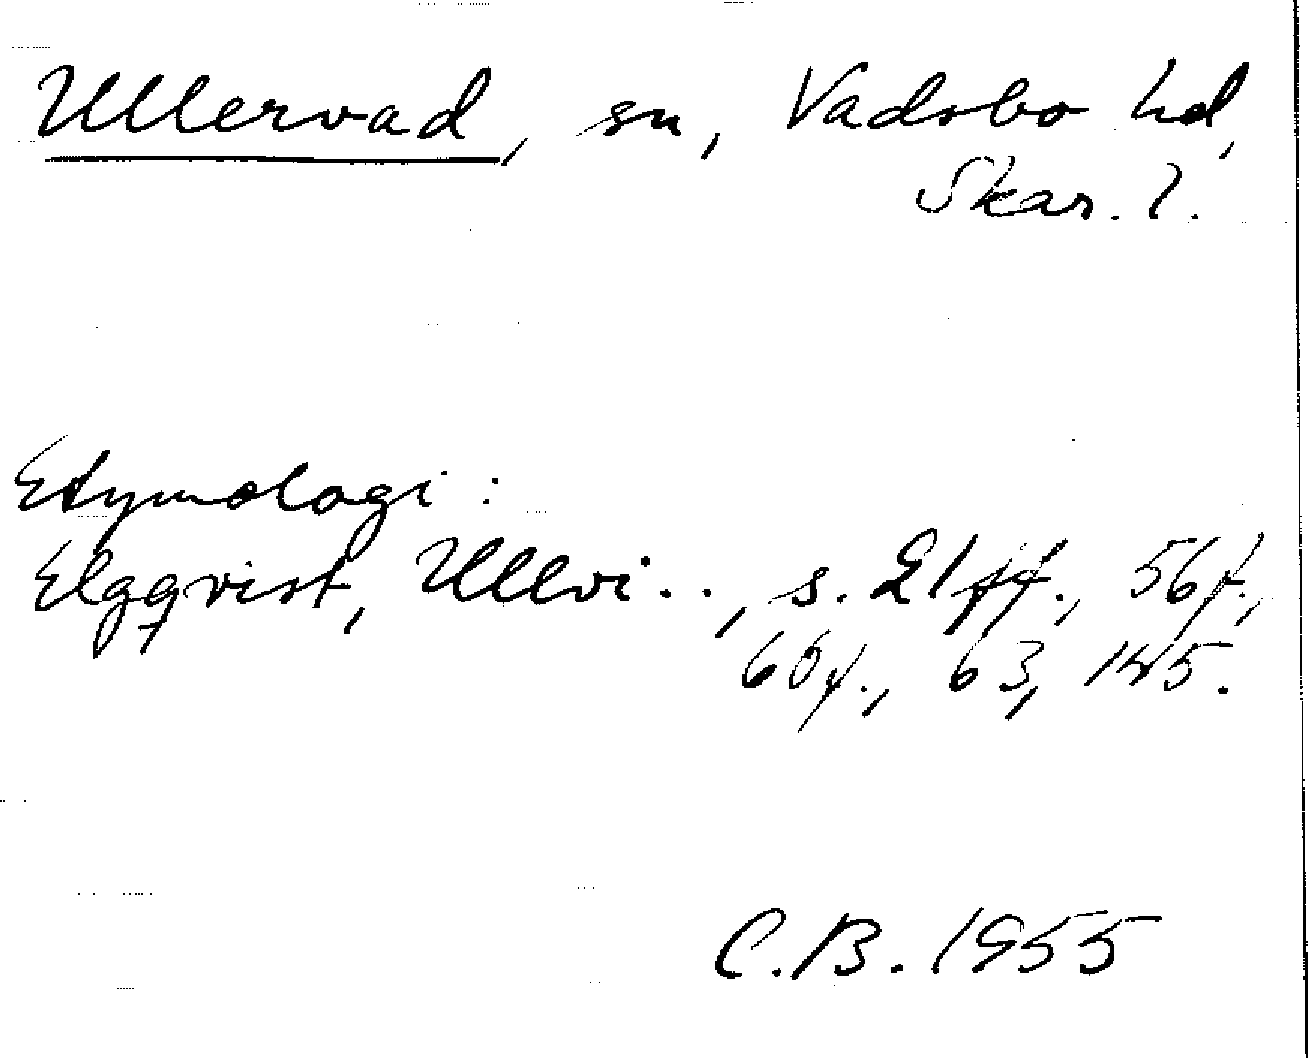 Ullervad, sn, Vadsbo hd,
Skar. l.
Etymologi:
Elgqvist, Ullvi.., s. 21 ff., 56f.,
60f., 63, 145.
C.B. 1955